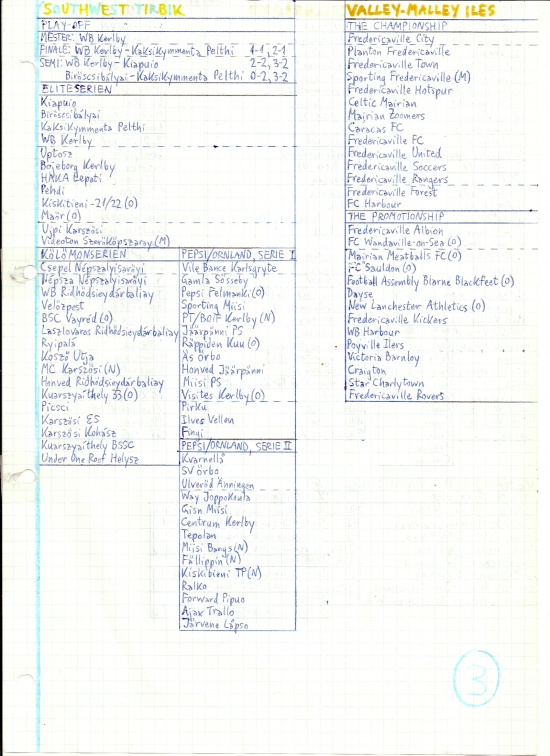 SOUTHWEST TIRBIK
PLAY-OFF
MESTER: WB Kerlby
FINALE: WB Kerlby - Kaksikymmenta Pelthi 4-1, 2-1
SEMI: WB Kerlby - Kiapuio 2-2, 3-2
Biröscsibályai - Kaksikymmenta Pelthi 0-2, 3-2
ELITESERIEN
Kiapuio
Biröscsibályai
Kaksikymmenta Pelthi
WB Kerlby
Uptosz
Bojeborg Kerlby
HAKA Lepati
Pehdi
Kiskitieni-21/22 (O)
Maár (O)
Ujpi Karszösi
Videoton Szerüköpszaray (M)
KÖLÖMONSERIEN
Csepel Népszalyisaväyi
Népsza Népszalyisaväyi
WB Ridhódsieydárbaliay
Velözpest
BSC Vayréd (O)
Laszlovaros Ridhódsieydárbaliay
Ryipalá
Koszö Utja
MC Karszösi (N)
Honved Ridhódsieydárbaliay
Kuarszyaithely 33 (O)
Picsci
Karszösi ES
Karszösi Kohász
Kuarszyaithely BSSC
Under One Roof Helysz
PEPSI/ORNLAND, SERIE I
Vile Bance Karlsgryte
Gamla Sösseby
Pepsi Felmanki (O)
Sporting Miisi
PT/BoIF Kerlby (N)
Jäärpänni PS
Räppiden Kuu (O)
Ås Örbo
Honved Jäärpänni
Miisi PS
Visites Kerlby (O)
Pirku
Ilves Vellen
Finyi
PEPSI/ORNLAND, SERIE II
Kvarnellä
SV Örbo
Ulveröd Änningen
Way Joppokouta
Gisn Miisi
Centrum Kerlby
Tepolan
Miisi Bangs (N)
Fällippin (N)
Kiskibieni TP (N)
Ralko
Forward Pipuo
Ajax Trallo
Järvene Låpso
VALLEY-MALLEY ILES
THE CHAMPIONSHIP
Fredericaville City
Planton Fredericaville
Fredericaville Town
Sporting Fredericaville (M)
Fredericaville Hotspur
Celtic Mairian
Mairian Zoomers
Caracas FC
Fredericaville FC
Fredericaville United
Fredericaville Soccers
Fredericaville Rangers
Fredericaville Forest
FC Harbour
THE PROMOTIONSHIP
Fredericaville Albion
FC Wandaville-on-Sea (O)
Mairian Meatballs FC (O)
FC Sauldon (O)
Football Assembly Blarne Blackfeet (O)
Dayse
New Lanchester Athletics (O)
Fredericaville Kickers
WB Harbour
Poyville Ilers
Victoria Barnby
Craigton
Star Charlytown
Fredericaville Rovers
3